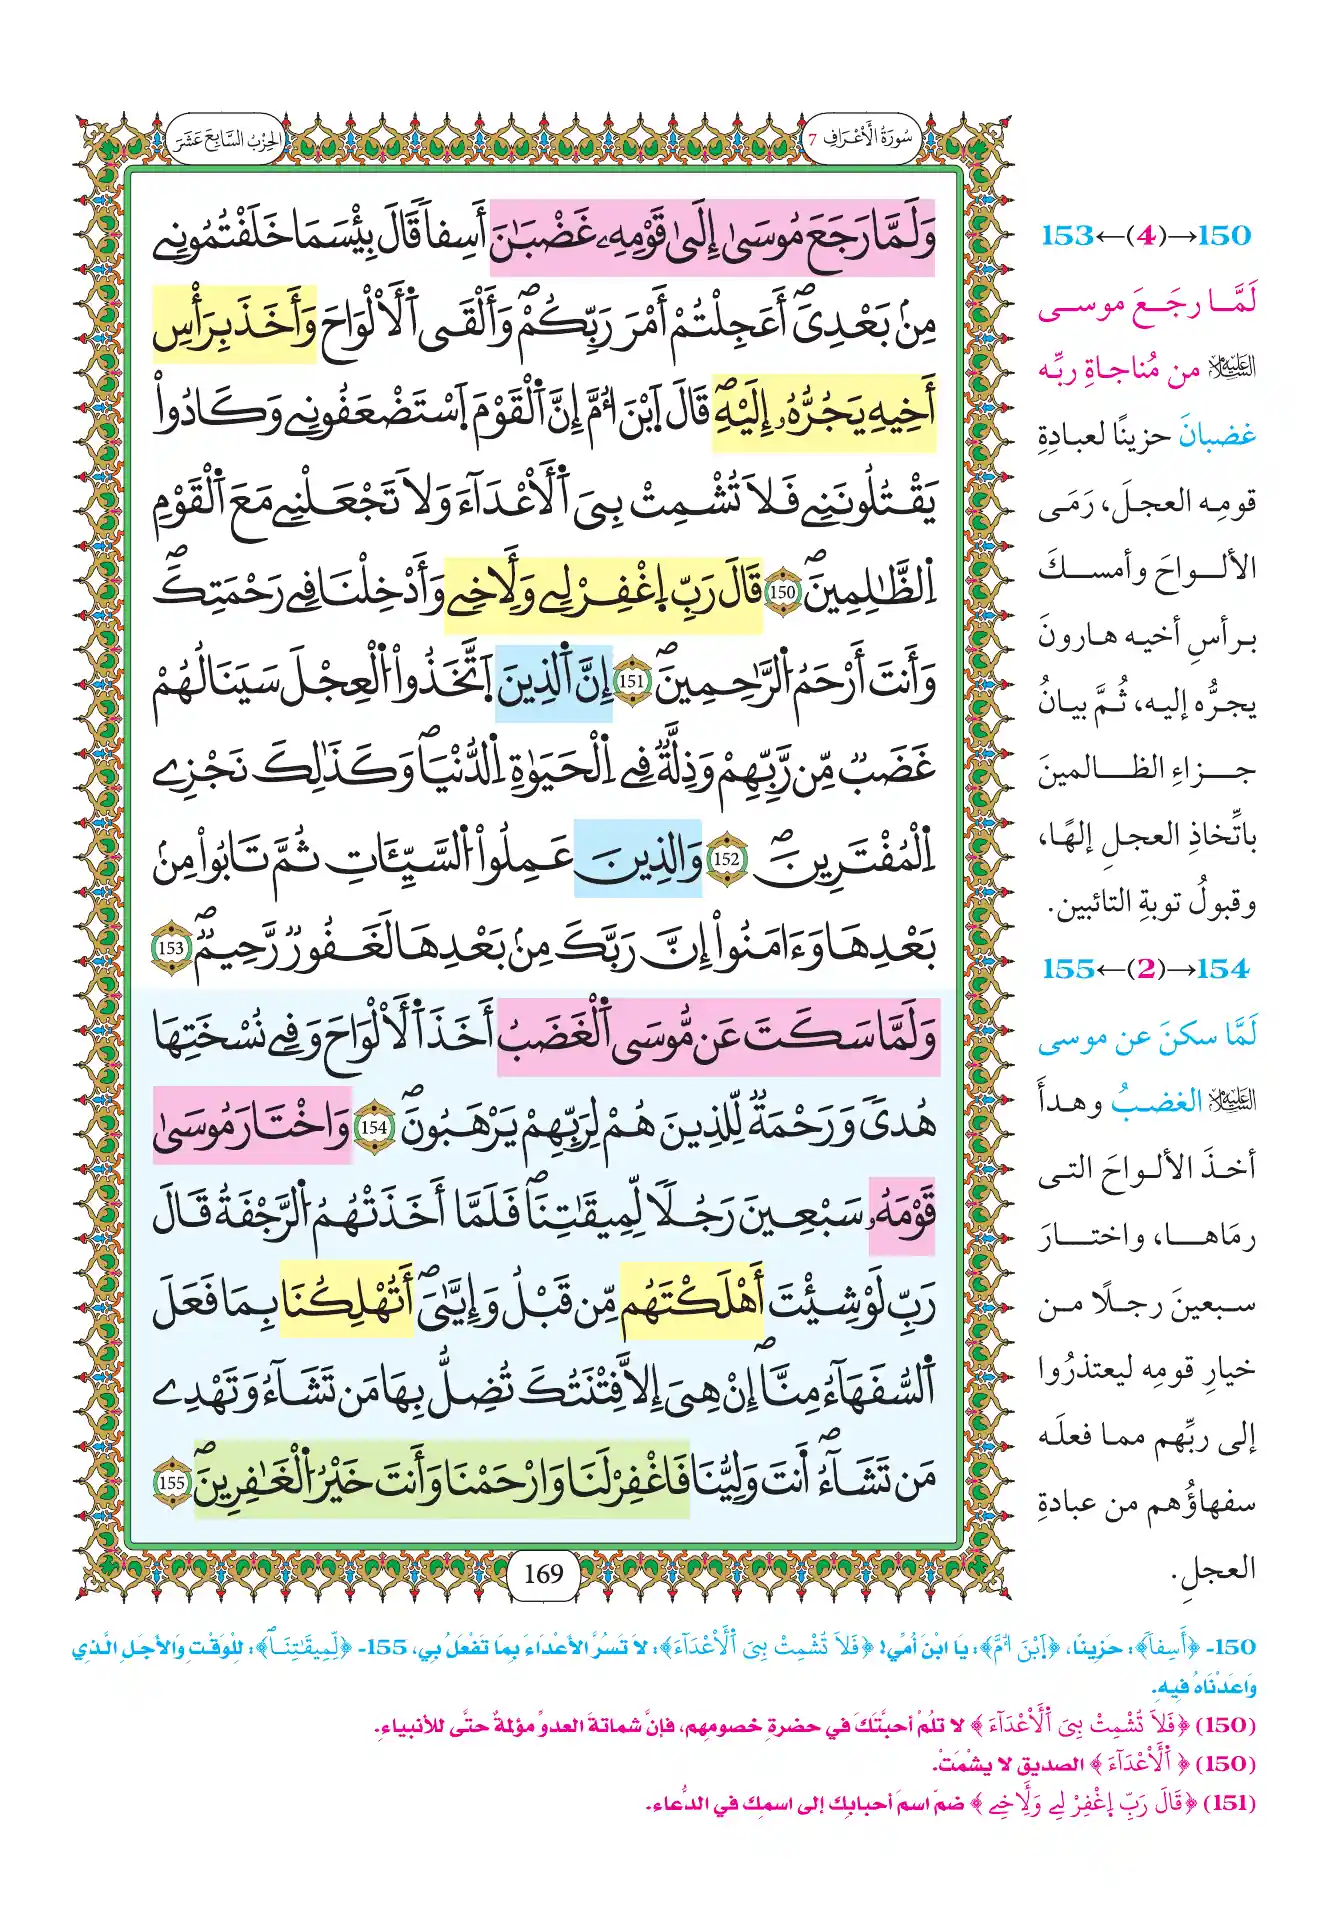 سُورَةُ الْأَعْرَافِ 7
الحِزْبُ السَّابِعَ عَشَرَ
وَلَمَّا رَجَعَ مُوسَىٰ إِلَىٰ قَوْمِهِۦ غَضْبَٰنَ أَسِفاٗ قَالَ بِئْسَمَا خَلَفْتُمُونِے
مِنۢ بَعْدِيَۖ أَعَجِلْتُمْ أَمْرَ رَبِّكُمْۖ وَأَلْقَى اَ۬لْأَلْوَاحَ وَأَخَذَ بِرَأْسِ
أَخِيهِ يَجُرُّهُۥ إِلَيْهِۖ قَالَ اَ۪بْنَ أُمَّ إِنَّ اَ۬لْقَوْمَ اَ۪سْتَضْعَفُونِے وَكَادُواْ
يَقْتُلُونَنِے فَلَا تُشْمِتْ بِيَ اَ۬لْأَعْدَآءَ وَلَا تَجْعَلْنِے مَعَ اَ۬لْقَوْمِ
اِ۬لظَّٰلِمِينَۖ 150 قَالَ رَبِّ اِ۪غْفِرْ لِے وَلِأَخِے وَأَدْخِلْنَا فِے رَحْمَتِكَۖ
وَأَنتَ أَرْحَمُ اُ۬لرَّٰحِمِينَۖ 151 إِنَّ اَ۬لذِينَ اَ۪تَّخَذُواْ اُ۬لْعِجْلَ سَيَنَالُهُمْ
غَضَبٞ مِّن رَّبِّهِمْ وَذِلَّةٞ فِے اِ۬لْحَيَوٰةِ اِ۬لدُّنْيَاۖ وَكَذَٰلِكَ نَجْزِے
اِ۬لْمُفْتَرِينَۖ 152 وَالذِينَ عَمِلُواْ اُ۬لسَّيِّـَٔاتِ ثُمَّ تَابُواْ مِنۢ
بَعْدِهَا وَءَامَنُواْ إِنَّ رَبَّكَ مِنۢ بَعْدِهَا لَغَفُورٞ رَّحِيمٞۖ 153
وَلَمَّا سَكَتَ عَن مُّوسَى اَ۬لْغَضَبُ أَخَذَ اَ۬لْأَلْوَاحَ وَفِے نُسْخَتِهَا
هُدىٗ وَرَحْمَةٞ لِّلذِينَ هُمْ لِرَبِّهِمْ يَرْهَبُونَۖ 154 وَاخْتَارَ مُوسَىٰ
قَوْمَهُۥ سَبْعِينَ رَجُلاٗ لِّمِيقَٰتِنَاۖ فَلَمَّا أَخَذَتْهُمُ اُ۬لرَّجْفَةُ قَالَ
رَبِّ لَوْ شِئْتَ أَهْلَكْتَهُم مِّن قَبْلُ وَإِيَّٰيَۖ أَتُهْلِكُنَا بِمَا فَعَلَ
اَ۬لسُّفَهَآءُ مِنَّاۖ إِنْ هِيَ إِلَّا فِتْنَتُكَ تُضِلُّ بِهَا مَن تَشَآءُ وَتَهْدِے
مَن تَشَآءُۖ أَنتَ وَلِيُّنَا فَاغْفِرْ لَنَا وَارْحَمْنَا وَأَنتَ خَيْرُ اُ۬لْغَٰفِرِينَۖ 155
169
150→(4)←153
لَمَّا رجَعَ موسى
عليه السلام من مُناجاةِ ربِّه
غضبانَ حزينًا لعبادِةِ
قومِه العجلَ، رَمَى
الألواحَ وأمسكَ
برأسِ أخيه هارونَ
يجرُّه إليه، ثُمَّ بيانُ
جزاءِ الظالمينَ
باتِّخاذِ العجلِ إلهًا،
وقبولُ توبةِ التائبين.
154→(2)←155
لَمَّا سكنَ عن موسى
عليه السلام الغضبُ وهدأَ
أخذَ الألواحَ التى
رمَاها، واختارَ
سبعينَ رجلًا من
خيارِ قومِه ليعتذرُوا
إلى ربِّهم مما فعلَه
سفهاؤُهم من عبادةِ
العجلِ.
150- ﴿أَسِفاٗ﴾: حَزِينًا، ﴿اَ۪بْنَ أُمَّ﴾: يَا ابْنَ أُمِّي! ﴿فَلَا تُشْمِتْ بِيَ اَ۬لْأَعْدَآءَ﴾: لَا تَسُرَّ الأَعْدَاءَ بِمَا تَفْعَلُ بِي، 155- ﴿لِّمِيقَٰتِنَاۖ﴾: لِلْوَقْتِ وَالأَجَلِ الَّذِي
وَاعَدْنَاهُ فِيهِ.
(150) ﴿فَلَا تُشْمِتْ بِيَ اَ۬لْأَعْدَآءَ﴾ لا تلُمْ أحبَّتَكَ في حضرةِ خصومِهم، فإنَّ شماتةَ العدوِّ مؤلمةٌ حتَّى للأنبياءِ.
(150) ﴿اَ۬لْأَعْدَآءَ﴾ الصديق لا يشْمَتْ.
(151) ﴿قَالَ رَبِّ اِ۪غْفِرْ لِے وَلِأَخِے﴾ ضمّ اسمَ أحبابِك إلى اسمِك في الدُّعاء.